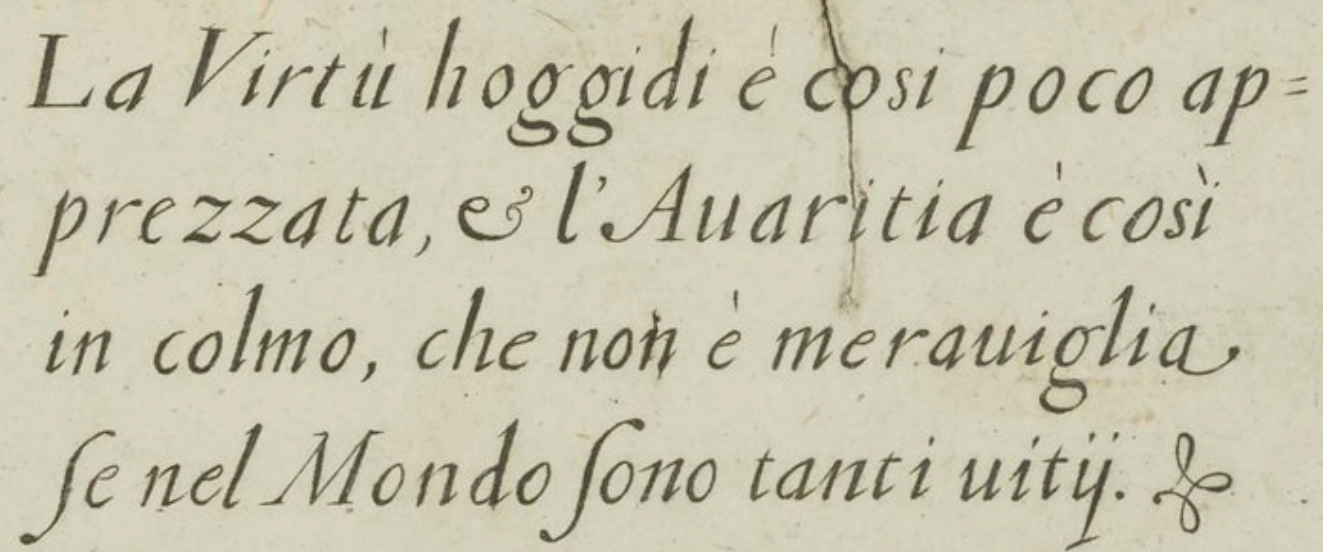 La Virtù hoggidi è cosi poco ap=
prezzata, & l'Auaritia è così
in colmo, che non è merauiglia
ſe nel Mondo ſono tanti uitij.